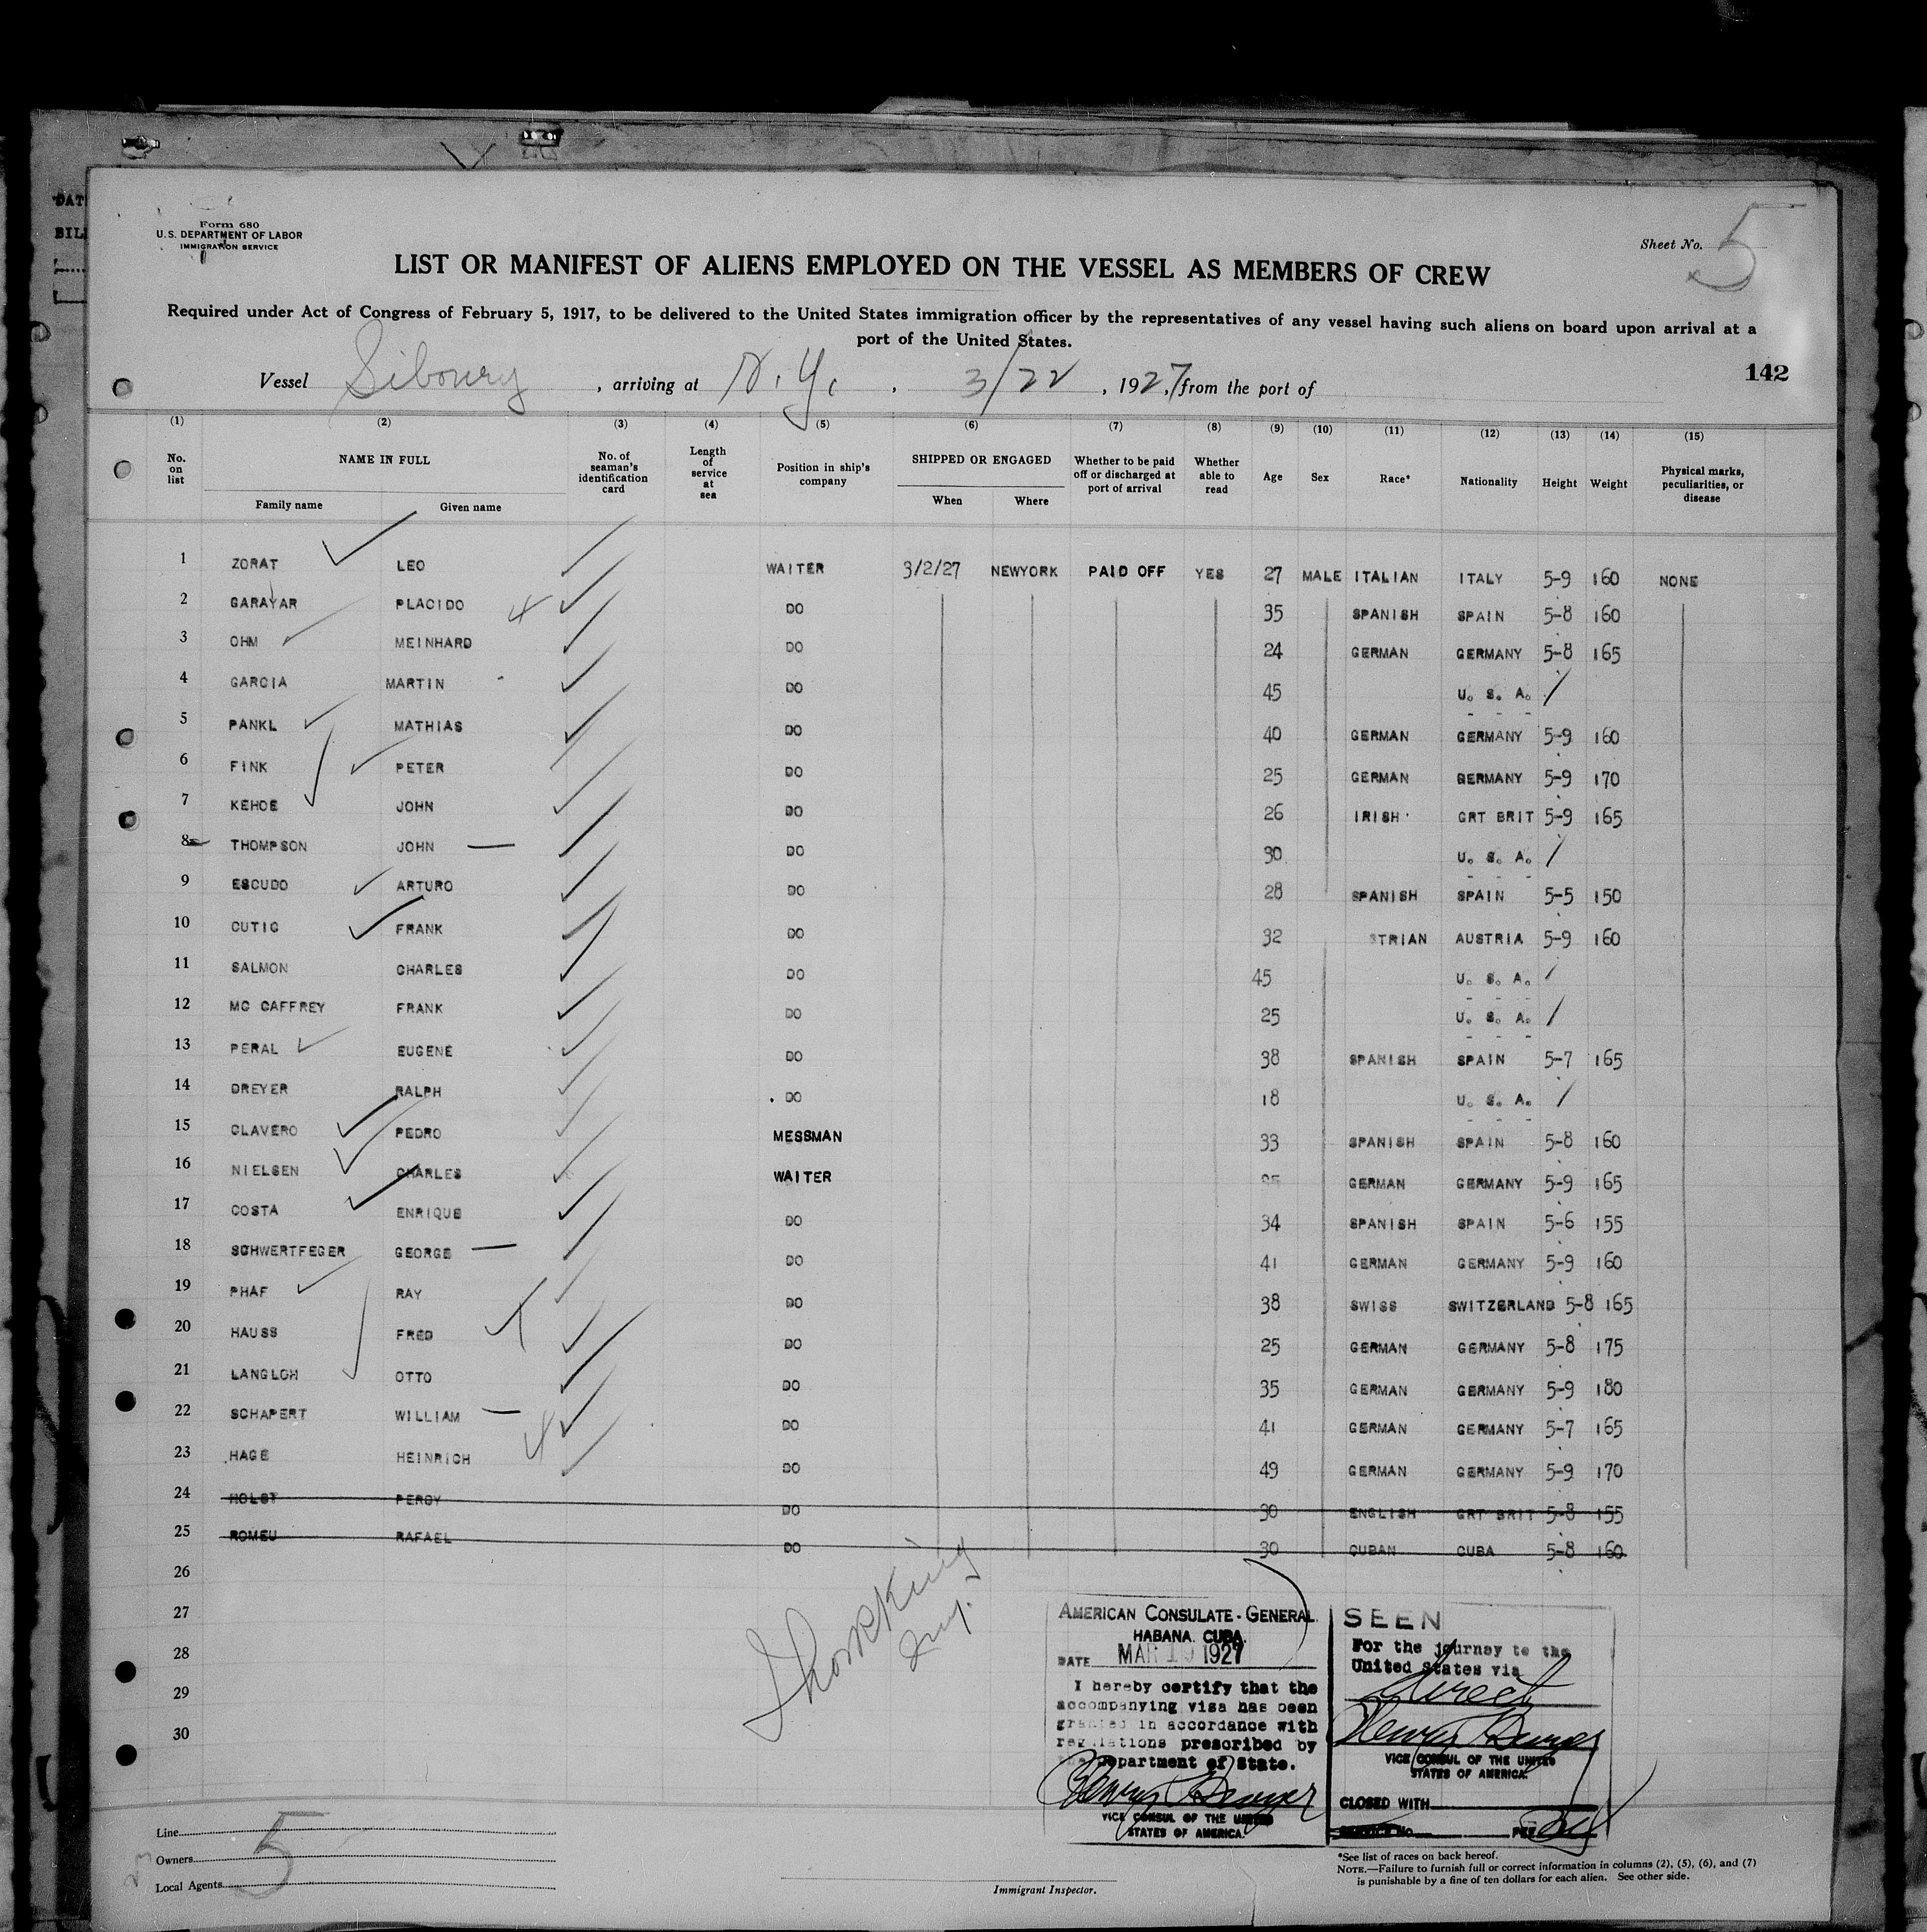 DAT
BIL
Form 680
U.S. DEPARTMENT OF LABOR
IMMIGRATION SERVICE
Sheet No. 5
LIST OR MANIFEST OF ALIENS EMPLOYED ON THE VESSEL AS MEMBERS OF CREW
Required under Act of Congress of February 5, 1917, to be delivered to the United States immigration officer by the representatives of any vessel having such aliens on board upon arrival at a
port of the United States.
142
Vessel Siboney, arriving at N.Y., 3/22, 1927, from the port of
(1) (2) (3) (4) (5) (6) (7) (8) (9) (10) (11) (12) (13) (14) (15)
No. on list NAME IN FULL No. of seaman's identification card Length of service at sea Position in ship's company SHIPPED OR ENGAGED Whether to be paid off or discharged at port of arrival Whether able to read Age Sex Race* Nationality Height Weight Physical marks, peculiarities, or disease
Family name Given name When Where
1 ZORAT LEO WAITER 3/2/27 NEWYORK PAID OFF YES 27 MALE ITALIAN ITALY 5-9 160 NONE
2 GARAYAR PLACIDO DO 35 SPANISH SPAIN 5-8 160
3 OHM MEINHARD DO 24 GERMAN GERMANY 5-8 165
4 GARCIA MARTIN DO 45 U. S. A.
5 PANKL MATHIAS DO 40 GERMAN GERMANY 5-9 160
6 FINK PETER DO 25 GERMAN GERMANY 5-9 170
7 KEHOE JOHN DO 26 IRISH GRT BRIT 5-9 165
8 THOMPSON JOHN DO 30 U. S. A.
9 ESCUDO ARTURO DO 28 SPANISH SPAIN 5-5 150
10 CUTIC FRANK DO 32 STRIAN AUSTRIA 5-9 160
11 SALMON CHARLES DO 45 U. S. A.
12 MC CAFFREY FRANK DO 25 U. S. A.
13 PERAL EUGENE DO 38 SPANISH SPAIN 5-7 165
14 DREYER RALPH DO 18 U. S. A.
15 CLAVERO PEDRO MESSMAN 33 SPANISH SPAIN 5-8 160
16 NIELSEN CHARLES WAITER GERMAN GERMANY 5-9 165
17 COSTA ENRIQUE DO 34 SPANISH SPAIN 5-6 155
18 SCHWERTFEGER GEORGE DO 41 GERMAN GERMANY 5-9 160
19 PHAF RAY DO 38 SWISS SWITZERLAND 5-8 165
20 HAUSS FRED DO 25 GERMAN GERMANY 5-8 175
21 LANGLOH OTTO DO 35 GERMAN GERMANY 5-9 180
22 SCHAPERT WILLIAM DO 41 GERMAN GERMANY 5-7 165
23 HAGE HEINRICH DO 49 GERMAN GERMANY 5-9 170
24 HOLST PERCY DO 30 ENGLISH GRT BRIT 5-8 155
25 ROMEU RAFAEL DO 30 CUBAN CUBA 5-8 160
26
27
28
29
30
AMERICAN CONSULATE-GENERAL
HABANA. CUBA.
DATE MAR 19 1927
I hereby certify that the
accompanying visa has been
granted in accordance with
regulations prescribed by
the Department of State.
VICE CONSUL OF THE UNITED
STATES OF AMERICA.
SEEN
For the journey to the
United States via
direct
VICE CONSUL OF THE UNITED
STATES OF AMERICA.
CLOSED WITH
SERVICE No. FEE
Line
Owners
Local Agents
5
Immigrant Inspector.
*See list of races on back hereof.
NOTE.—Failure to furnish full or correct information in columns (2), (5), (6), and (7)
is punishable by a fine of ten dollars for each alien. See other side.